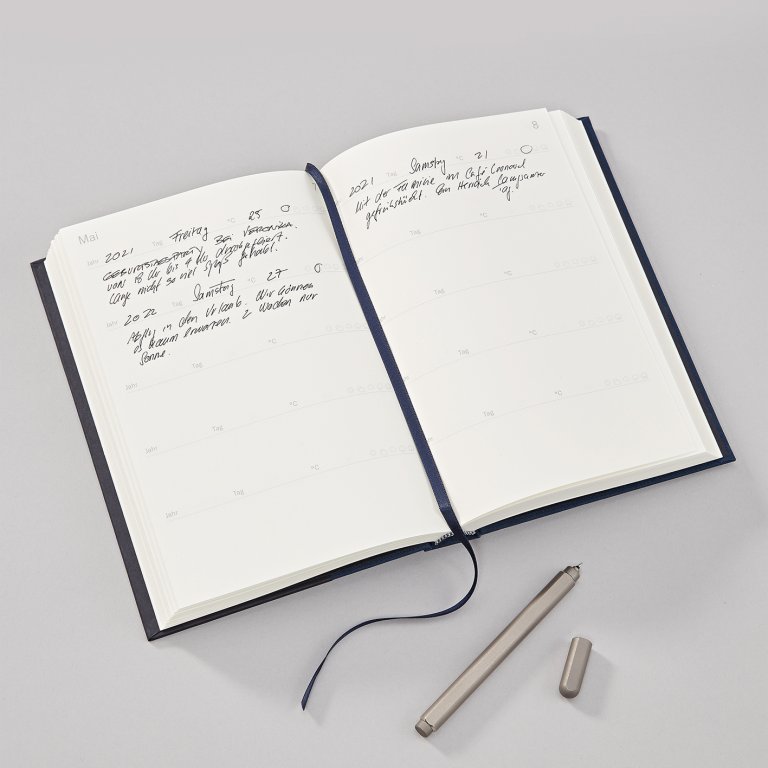 Mai
Jahr 2021 Tag Freitag °C 25
GEBURTSTAGSPARTY BEI VERONIKA.
von 18 Uhr bis 4 Uhr durchgefeiert.
Lange nicht so viel Spaß gehabt.
Jahr 2022 Tag Samstag °C 27
Abflug in den Urlaub. Wir können
es kaum erwarten. 2 Wochen nur
Sonne.
Jahr Tag °C
Jahr Tag °C
Jahr Tag °C
8
2021 Tag Samstag °C 21
Mit der Familie im Café Conrad
gefrühstückt. Hendrik
Tag °C
Tag °C
Tag °C
Tag °C